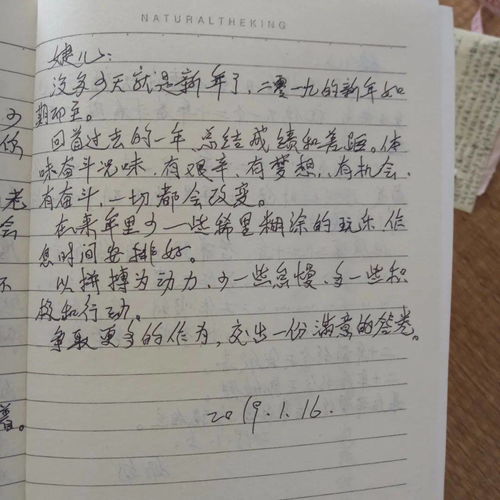 NATURALTHEKING
婕儿：
没多少天就是新年了，二零一九的新年如
期而至。
回首过去的一年，总结成绩和差距。体
味奋斗况味，有艰辛，有梦想，有机会，
有奋斗，一切都会改变。
在来年里少一些稀里糊涂的玩乐，作
息时间安排好。
以拼搏为动力，少一些怠慢，多一些积
极和行动。
争取更多的作为，交出一份满意的答卷。
2019.1.16.
少
你
老
会
不